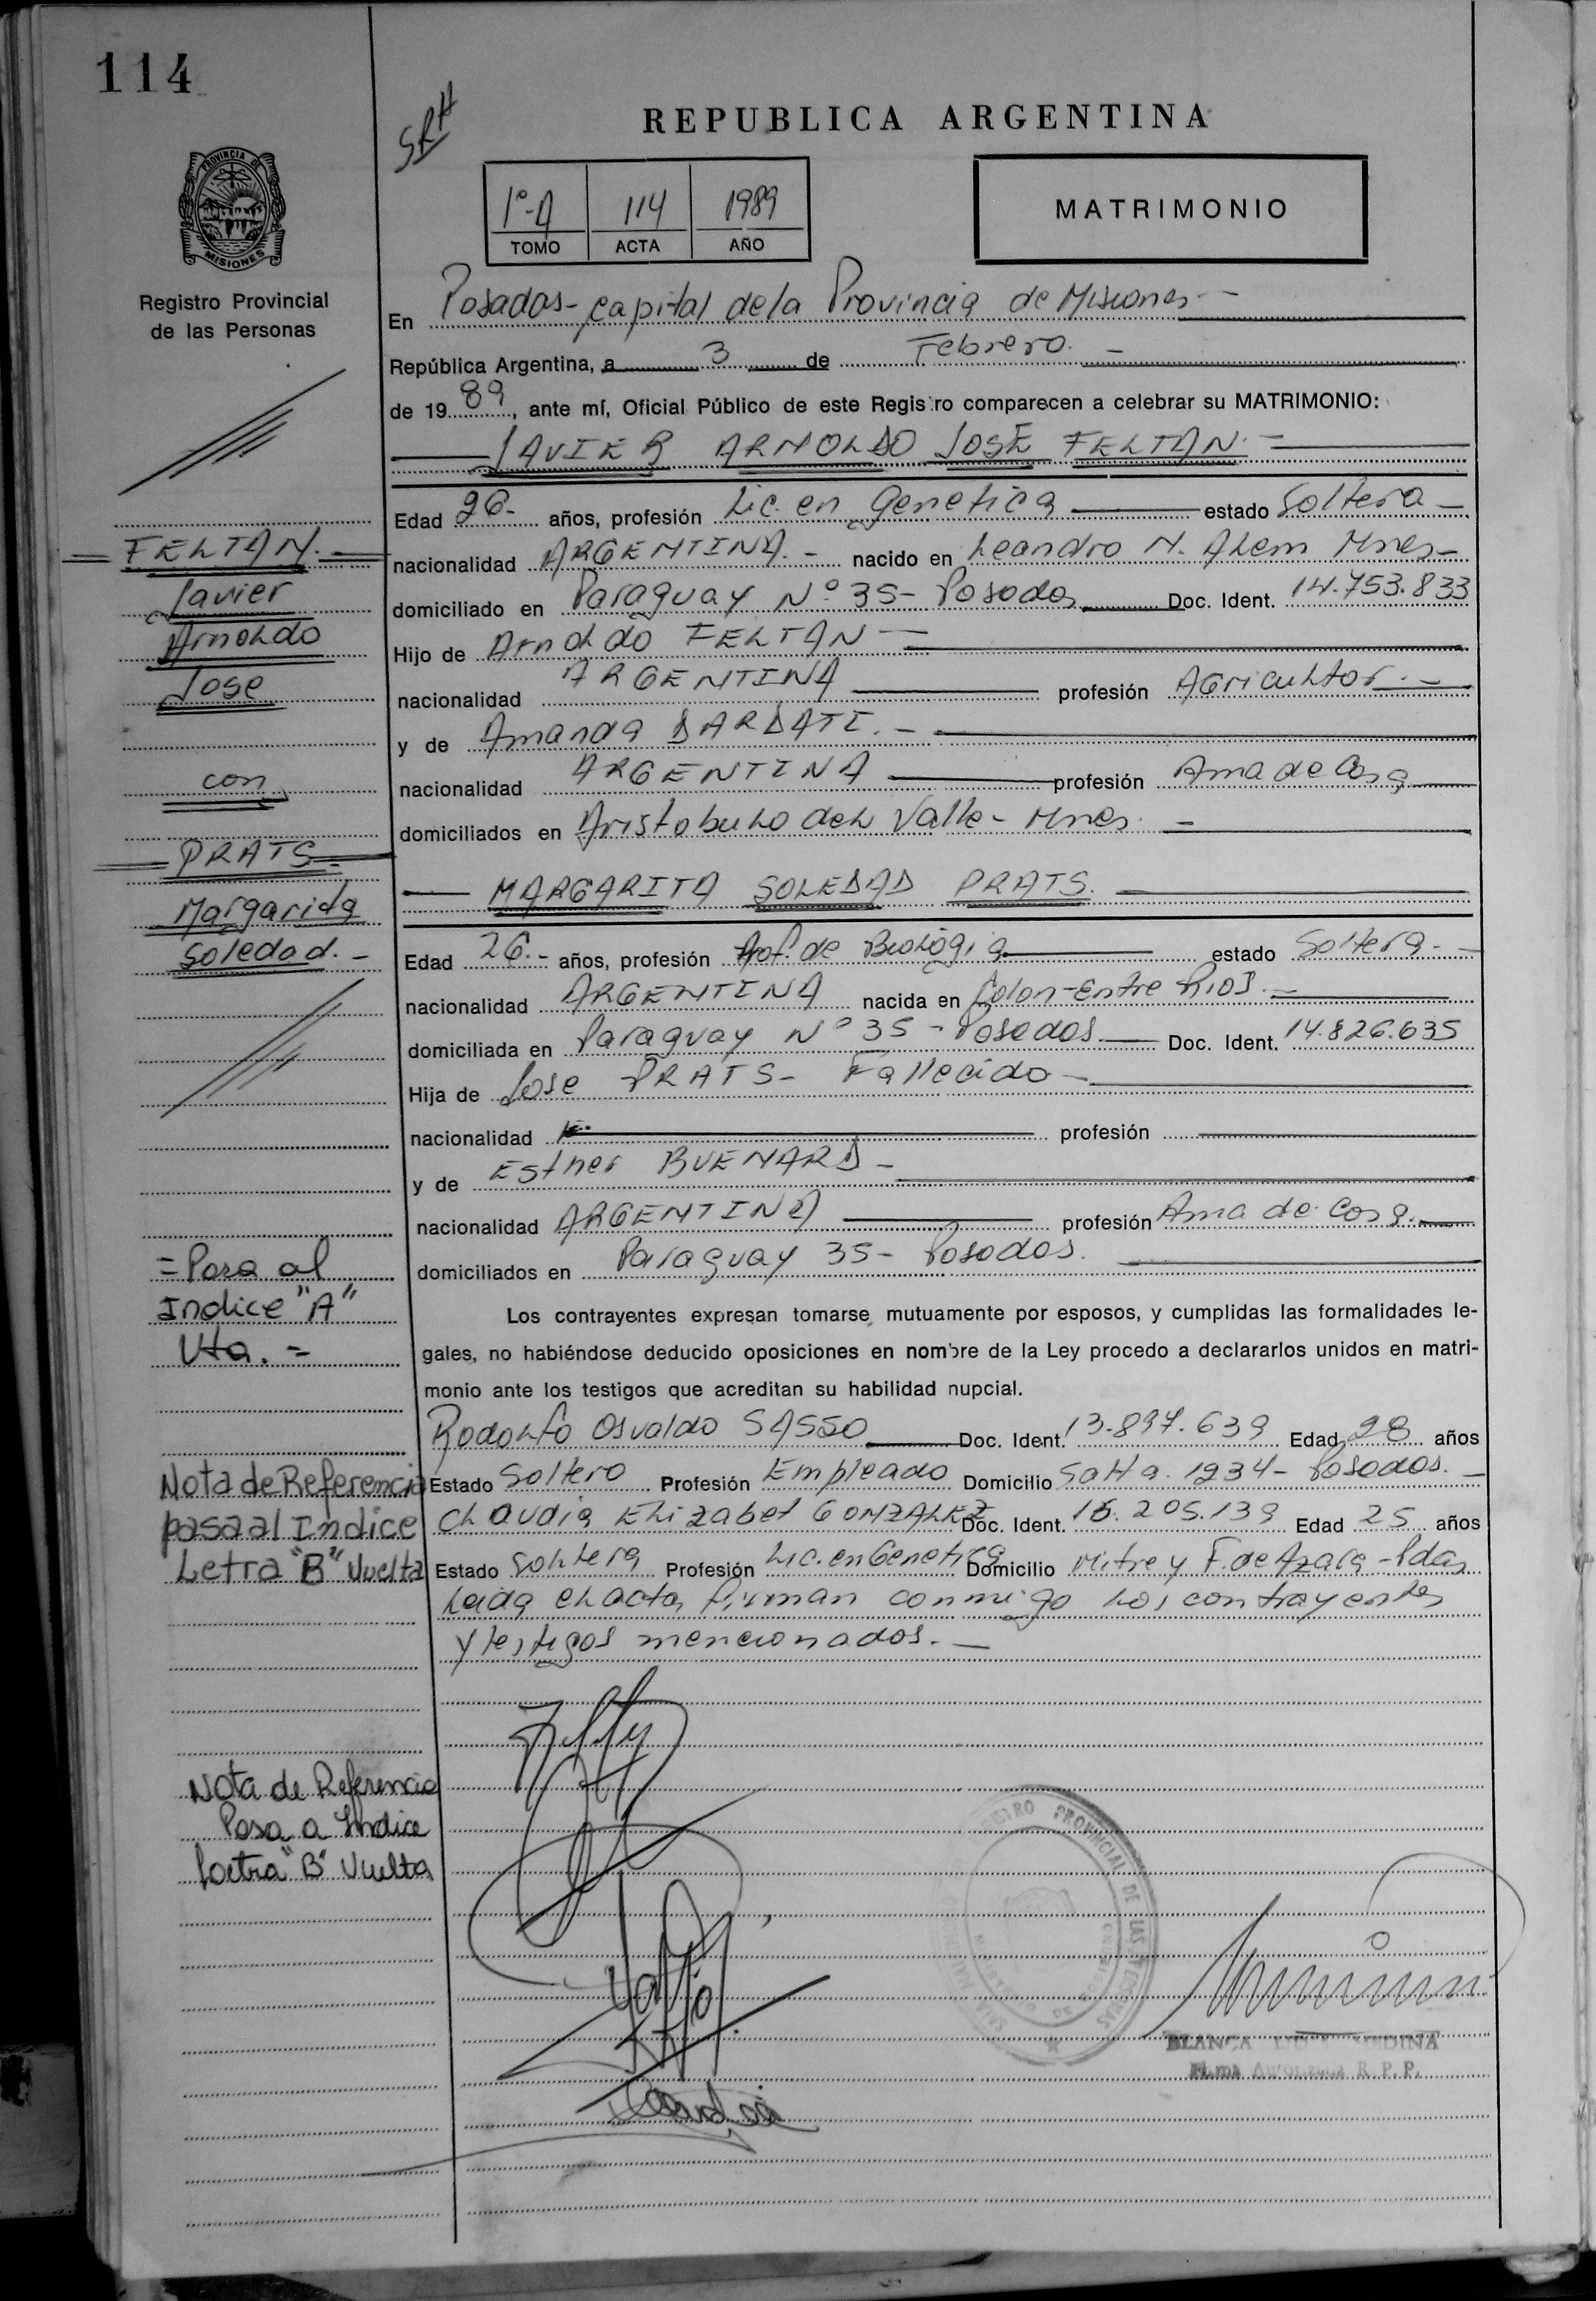 114
SRH
REPUBLICA ARGENTINA
PROVINCIA DE
MISIONES
Registro Provincial
de las Personas
1º-A 114 1989
TOMO ACTA AÑO
MATRIMONIO
En Posadas - capital de la Provincia de Misiones -
República Argentina, a 3 de Febrero. -
de 1989, ante mí, Oficial Público de este Registro comparecen a celebrar su MATRIMONIO:
JAVIER ARNOLDO JOSÉ FELTAN. -
Edad 26.- años, profesión Lic. en Genetica estado Soltero -
nacionalidad ARGENTINA. - nacido en Leandro N. Alem Mnes -
domiciliado en Paraguay Nº 35 - Posadas Doc. Ident. 14.753.833
Hijo de Arnoldo FELTAN -
nacionalidad ARGENTINA profesión Agricultor. -
y de Amanda DARDATI. -
nacionalidad ARGENTINA profesión Ama de Casa
domiciliados en Aristobulo del Valle - Mnes. -
MARGARITA SOLEDAD PRATS.
Edad 26.- años, profesión Prof. de Biología estado Soltera. -
nacionalidad ARGENTINA nacida en Colon - Entre Rios. -
domiciliada en Paraguay Nº 35 - Posadas Doc. Ident. 14.826.635
Hija de Jose PRATS - Fallecido -
nacionalidad profesión
y de Esther BUENARD -
nacionalidad ARGENTINA profesión Ama de Casa.
domiciliados en Paraguay 35 - Posadas.
Los contrayentes expresan tomarse mutuamente por esposos, y cumplidas las formalidades le-
gales, no habiéndose deducido oposiciones en nombre de la Ley procedo a declararlos unidos en matri-
monio ante los testigos que acreditan su habilidad nupcial.
Rodolfo Osvaldo SASSO Doc. Ident. 13.897.639 Edad 28 años
Estado Soltero Profesión Empleado Domicilio Salta 1934 - Posadas. -
Claudia Elizabet GONZALEZ Doc. Ident. 16.205.139 Edad 25 años
Estado Soltera Profesión Lic. en Genetica Domicilio Mitre y F. de Azara - Pdas
Leida el acta, firman conmigo los contrayentes
y testigos mencionados. -
FELTAN.
Javier
Arnoldo
Jose
con
PRATS.
Margarita
Soledad. -
= Pasa al
Indice "A"
Vta. =
Nota de Referencia
pasa al Indice
Letra "B" Vuelta
Nota de Referencia
Pasa a Indice
Letra "B" Vuelta
REGISTRO PROVINCIAL DE LAS PERSONAS
BLANCA MEDINA
Firma Autorizada R. P. P.